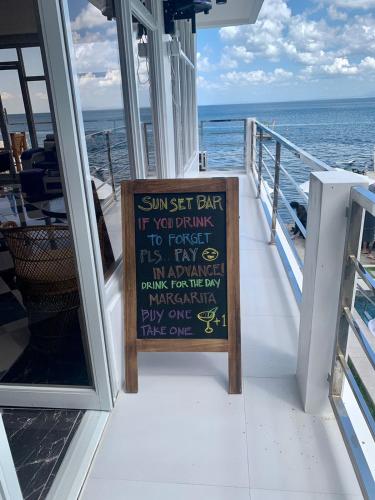 SUNSET BAR
IF YOU DRINK
TO FORGET
PLS.. PAY
IN ADVANCE!
DRINK FOR THE DAY
MARGARITA
BUY ONE
TAKE ONE +1